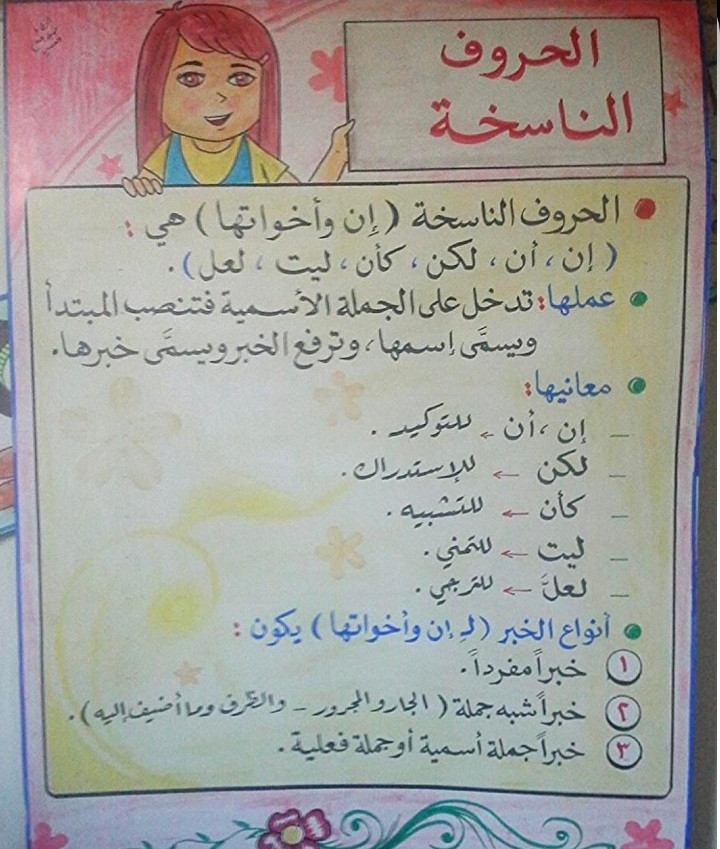 الحروف
الناسخة
الحروف الناسخة (إن وأخواتها) هي :
(إن، أن، لكن، كأن، ليت، لعل).
عملها: تدخل على الجملة الأسمية فتنصب المبتدأ
ويسمَّى إسمها، وترفع الخبر ويسمَّى خبرها.
معانيها:
_ إن، أن ← للتوكيد .
_ لكن ← للإستدراك .
_ كأن ← للتشبيه .
_ ليت ← للتمني .
_ لعلَّ ← للترجي .
أنواع الخبر (لـ إن وأخواتها) يكون :
١ خبراً مفرداً .
٢ خبراً شبه جملة (الجار والمجرور - والظرف وما أضيف إليه).
٣ خبراً جملة أسمية أو جملة فعلية .